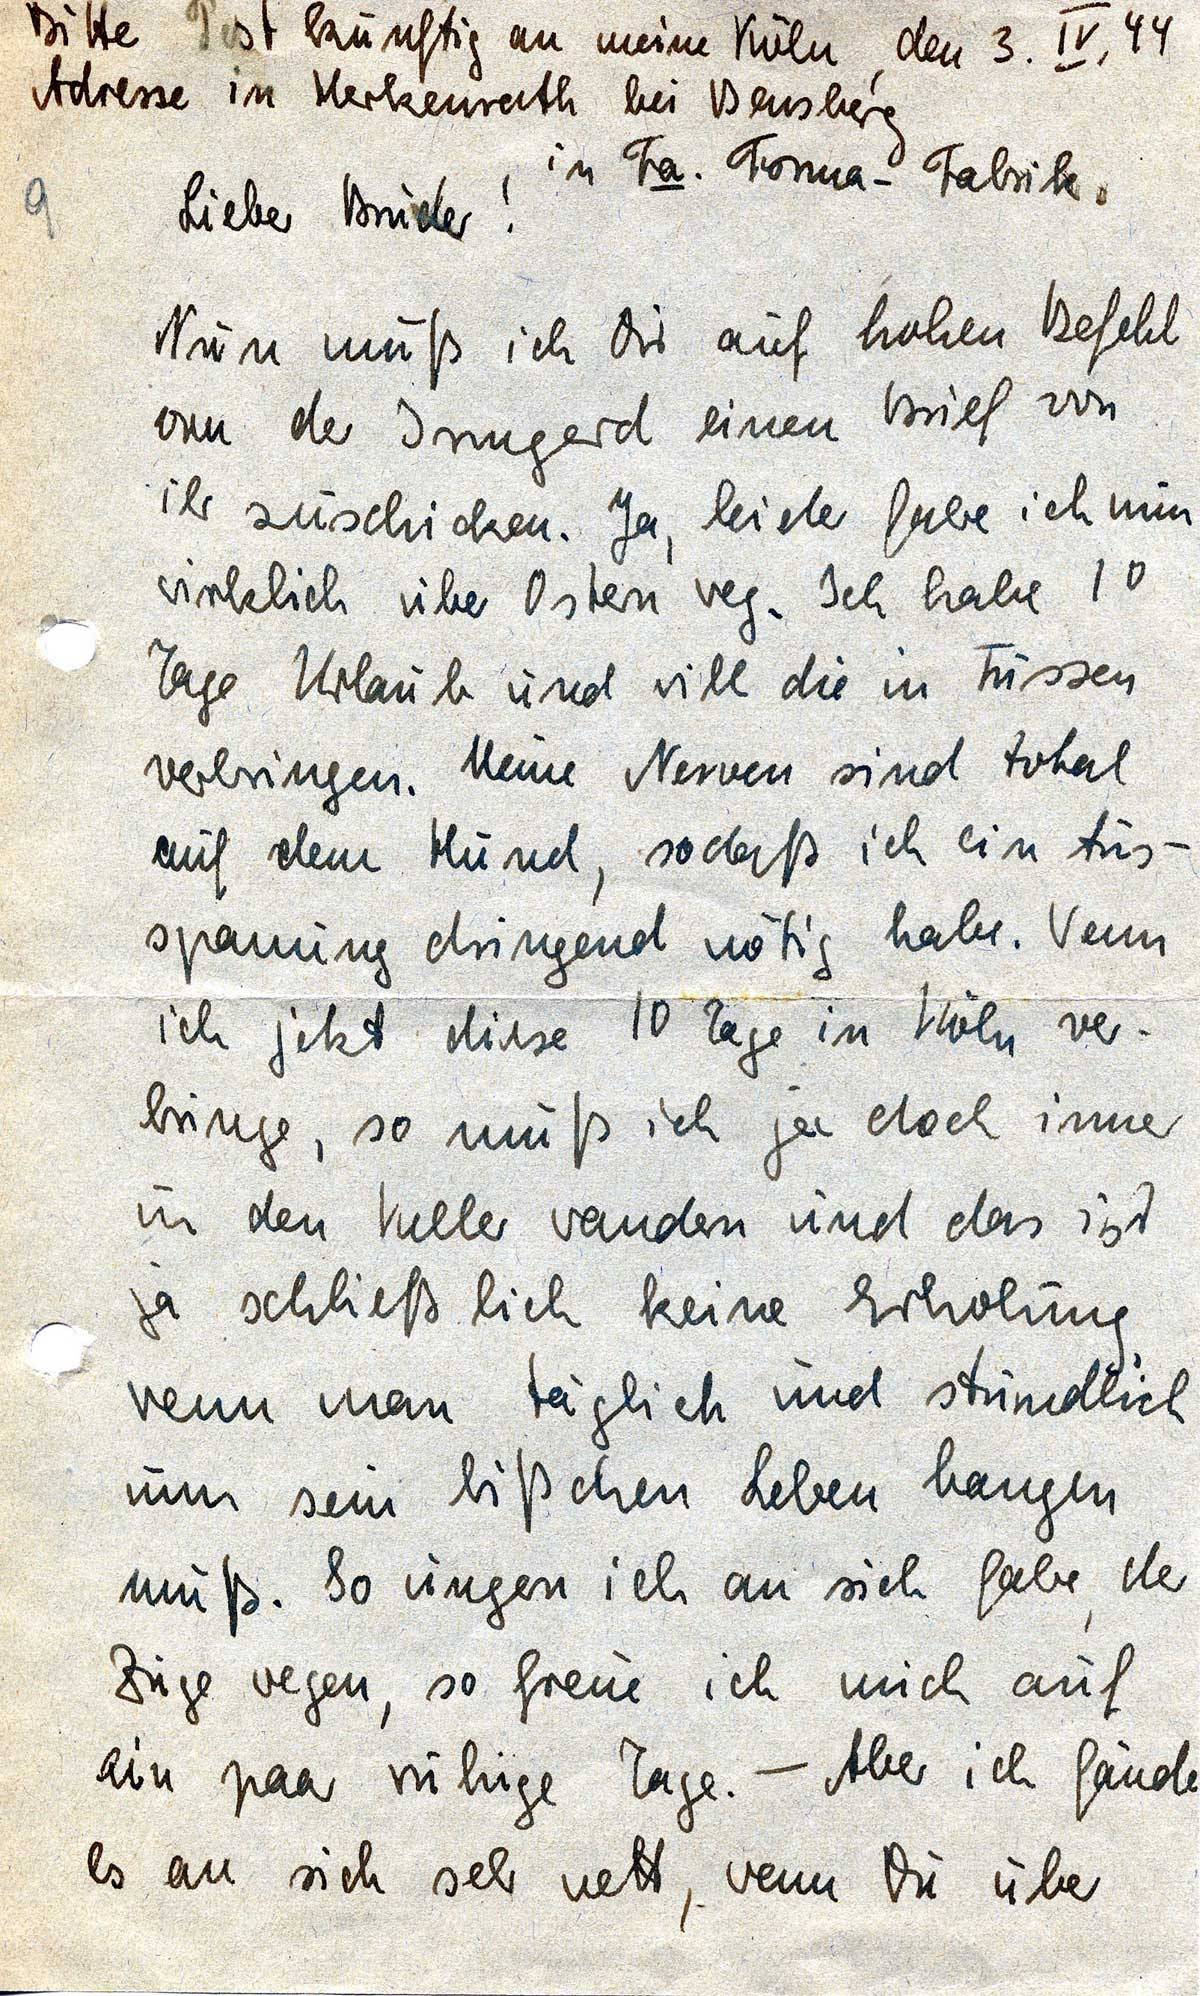 Bitte Post künftig an meine Köln, den 3. IV. 44
Adresse in Herkenrath bei Bensberg
in Fa. Forma-Fabrik.
9
Lieber Bruder!
Nun muß ich Dir auf hohen Befehl
von der Irmgard einen Brief von
ihr zuschicken. Ja, leider fahre ich nun
wirklich über Ostern weg. Ich habe 10
Tage Urlaub und will die in Füssen
verbringen. Meine Nerven sind total
auf dem Hund, sodaß ich ein Aus-
spannung dringend nötig habe. Wenn
ich jetzt diese 10 Tage in Köln ver-
bringe, so muß ich ja doch immer
in den Keller wandern und das ist
ja schließlich keine Erholung,
wenn man täglich und stündlich
um sein bißchen Leben bangen
muß. So ungern ich an sich fahre, der
Züge wegen, so freue ich mich auf
ein paar ruhige Tage. — Aber ich fände
es an sich sehr nett, wenn Du über